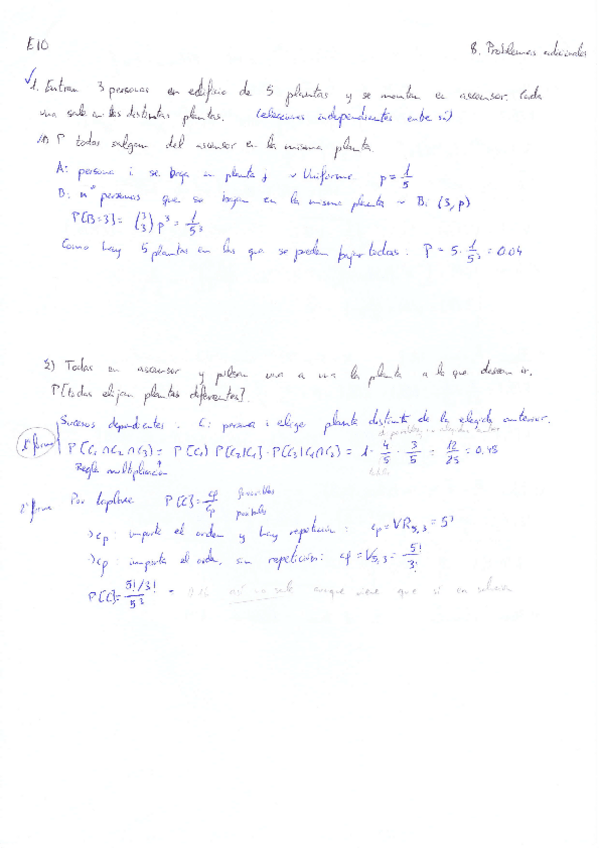 E10
8. Problemas adicionales
1. Entran 3 personas en edificio de 5 plantas y se montan en ascensor. Cada
una sale en las distintas plantas. (elecciones independientes entre sí)
P todas salgan del ascensor en la misma planta.
A: persona i se baja en planta j ~ Uniforme p = 1/5
B: nº personas que se bajan en la misma planta ~ B: (3, p)
P[B=3] = (3 3) p³ = 1/5³
Como hay 5 plantas en las que se puedan bajar todas: P = 5 · 1/5³ = 0.04
2) Todas en ascensor y pulsan una a una la planta a la que desean ir.
P[todas elijan plantas diferentes].
Sucesos dependientes. C: persona i elige planta distinta de la elegida anterior.
1ª forma P[C₁∩C₂∩C₃] = P[C₁) P[C₂|C₁] · P[C₃|C₁∩C₂) = 1 · 4/5 · 3/5 = 12/25 = 0.48
Regla multiplicación
2ª forma Por Laplace P[C] = cf/cp favorables posibles
>cp: importa el orden y hay repetición: cp = VR5,3 = 5³
>cp: importa el orden, sin repetición: cf = V5,3 = 5!/3!
P[C] = 5!/3! / 5³ = 0.16 así no sale aunque viene que sí en